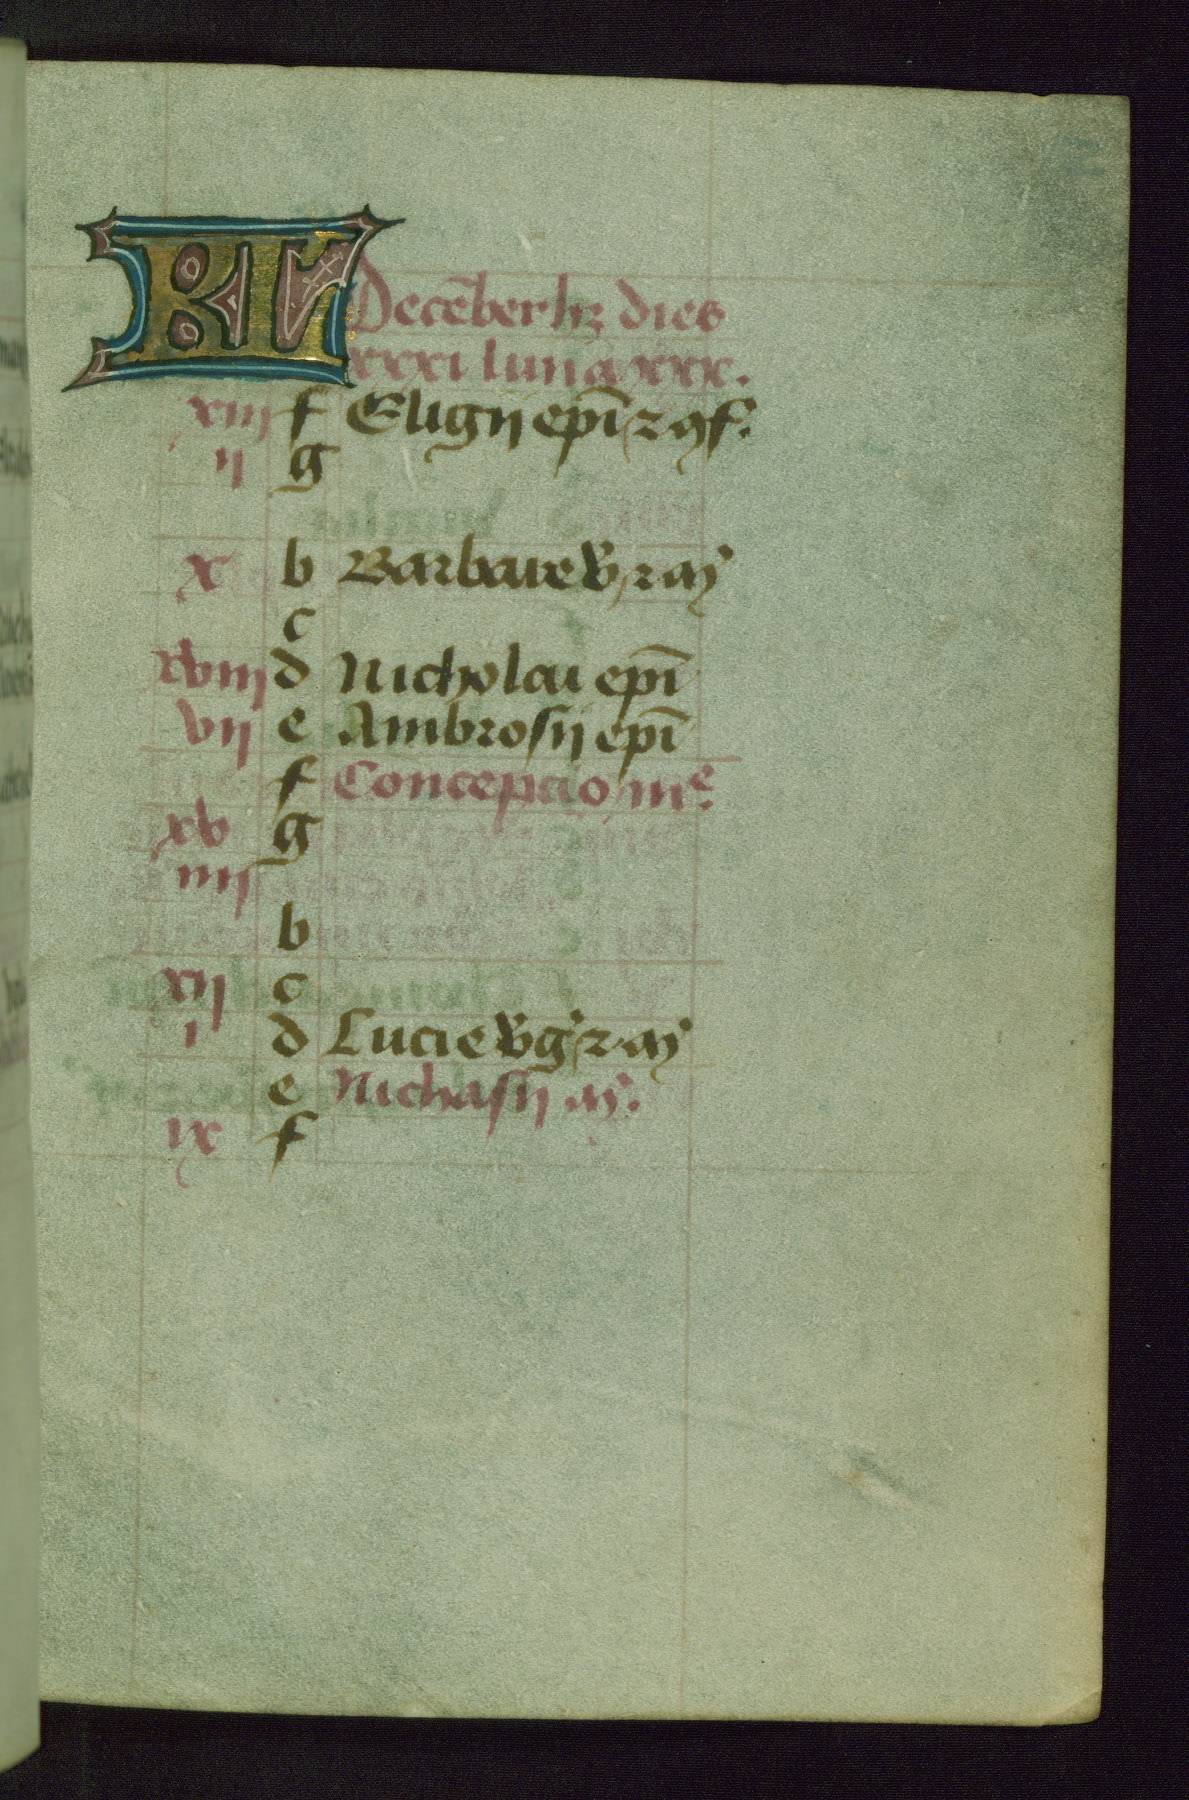 KL Decēber hꝫ dies
xxxi luna xxx.
xiij f Eligij epī ⁊ ꝯf.
ij g
x b Barbare v̄ ⁊ m̄
c
xviij d Nicholai epī
vij e Ambrosij epī
f Concepcio mᵉ.
xv g
iiij
b
xij c
i d Lucie v̄g ⁊ m̄
e Nichasij m̄.
ix f